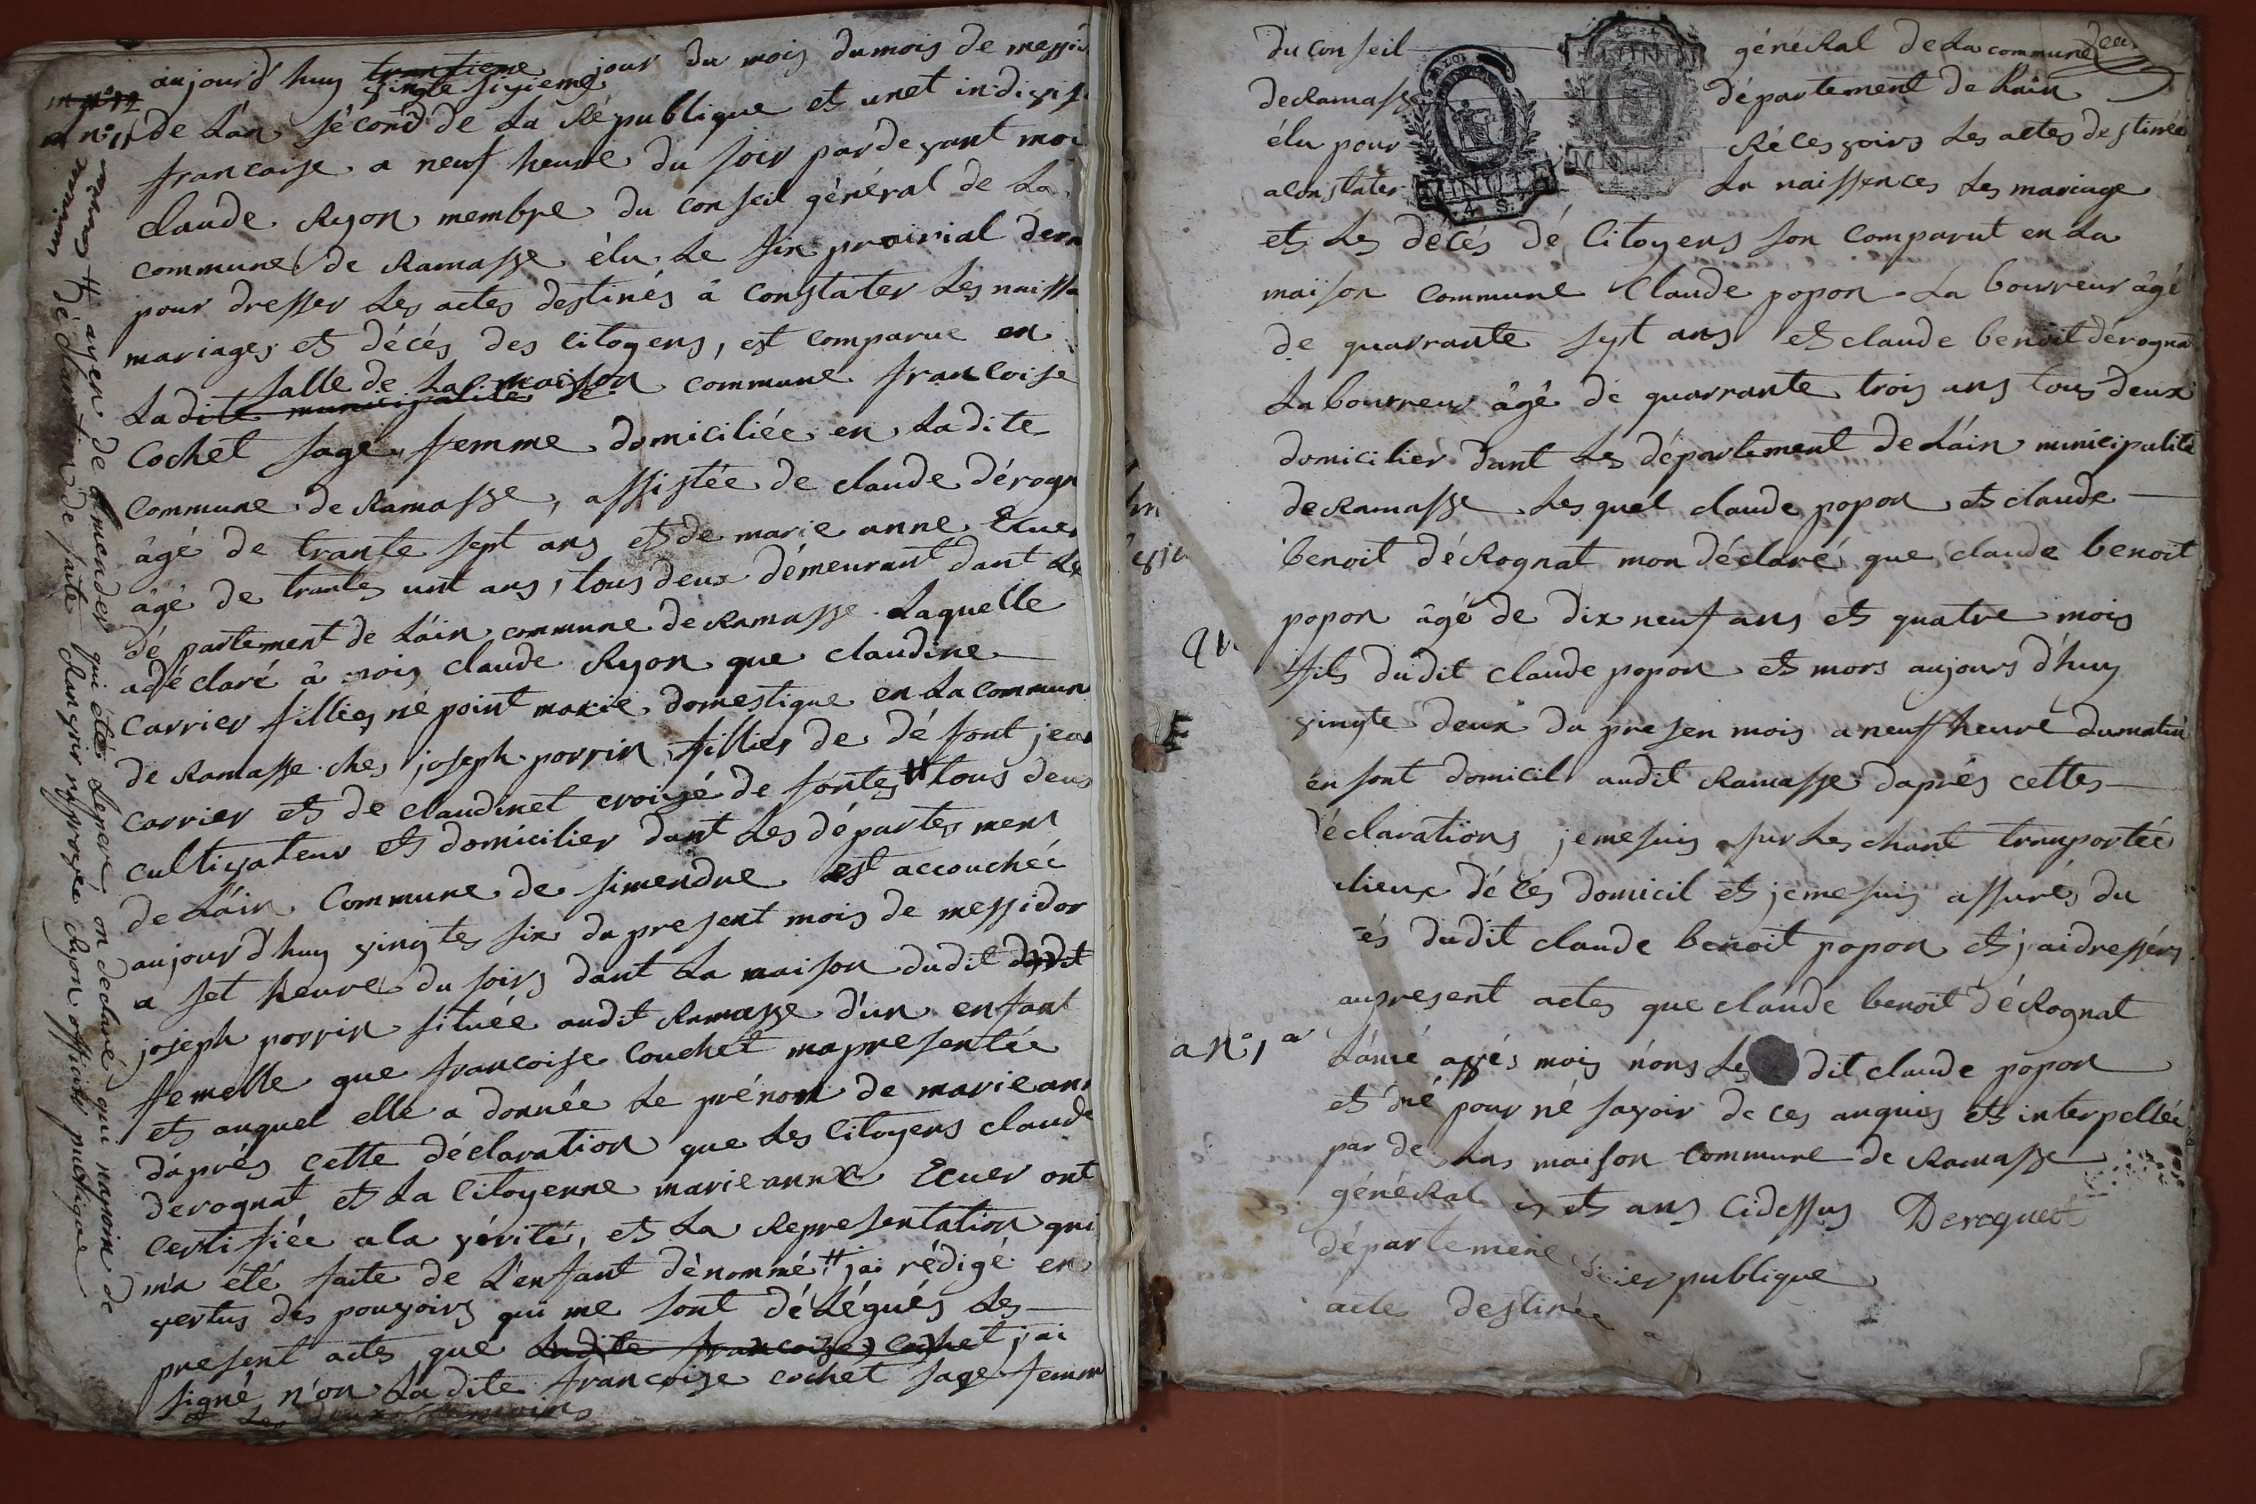 aujourd'huy trantieme vingte siyieme jour du mois du mois de messid
n° 12
n° 11 de l'an sécond de la République et unet indivis
francaise a neuf heure du soir pardevant moi
claude Ryon membre du conseil général de la
commune de Ramasse élu le sin prairial dern
pour dresser les actes destinés â constater les naissa
mariages et décés des citoyens, est comparue en
salle de la maison
ladite municipalité de commune francoise
Cochet sage femme domiciliée en ladite
commune de Ramasse, assistée de claude dérogn
âgé de trante sept ans et de marie anne Ecuer
âgé de trante unt ans, tous deux démeurant dant le
département de l'ain commune de Ramasse laquelle
adéclaré â mois claude Ryon que claudine
Carrier fillies né point marié domestique en la commun
de Ramasse ches joseph porrin fillies de défont jean
carrier et de claudinet croisé de fontes # tous deux
cultivateur et domicilier dant les départes ment
de l'ain Commune de simendre est accouchée
aujourd'huy vingtes six du present mois de messidor
a set heure du soirs dant la maison dudit dudit
joseph porrin située audit Ramasse d'un enfant
femelle que francoise Couchet mapresentée
et auquel elle a donnée le prénom de marie ann
d'aprés cette déclaration que les citoyens claude
derognat et la citoyenne marie anne Ecuer ont
certifiée a la vérité, et la Representation qui
m'a eté faite de l'enfant dénommé # jai rédigé en
vertus des pouvoirs qui me sont délégués les
present actes que ladite francoise cochet jai
signé n'on ladite francoise cochet sage femm
et les deux temoins
# ayen demender qui été lepere on déclaré qu
déclaration de faute Ryon officier publique
du conseil général de la commune
de Ramasse département de l'ain
élu pour Récesvoirs les actes destinée
aconstater la naissences les mariage
et les décés dé Citoyens son comparut en la
maison commune Claude popon laboureur âgé
de quarrante sept ans et claude benoit dérognat
laboureur âgê de quarrante trois ans tous deux
domicilier dant les département de l'ain municipalité
de Ramasse lesquel claude popon et claude
benoit déRognat mon déclaré que claude benoit
popon âgé de dix neuf ans et quatre mois
fils dudit claude popon et mors aujours d'huy
vingte deux du presen mois a neuf heure dumatin
en sont domicil audit Ramasse daprês cettes
déclarations jemesuis sur les chant transportée
lieux décés domicil et jemesuis assurés du
és dudit claude benoit popon et j'aidressérs
aupresent actes que claude benoit déRognat
a n° 1 a
L'âmé dit claude popon
et pour né savoir de ces anquis et interpellée
par de las maison commune de Ramasse
général et ans cidessus Derognat
département cier publique
actes destinée